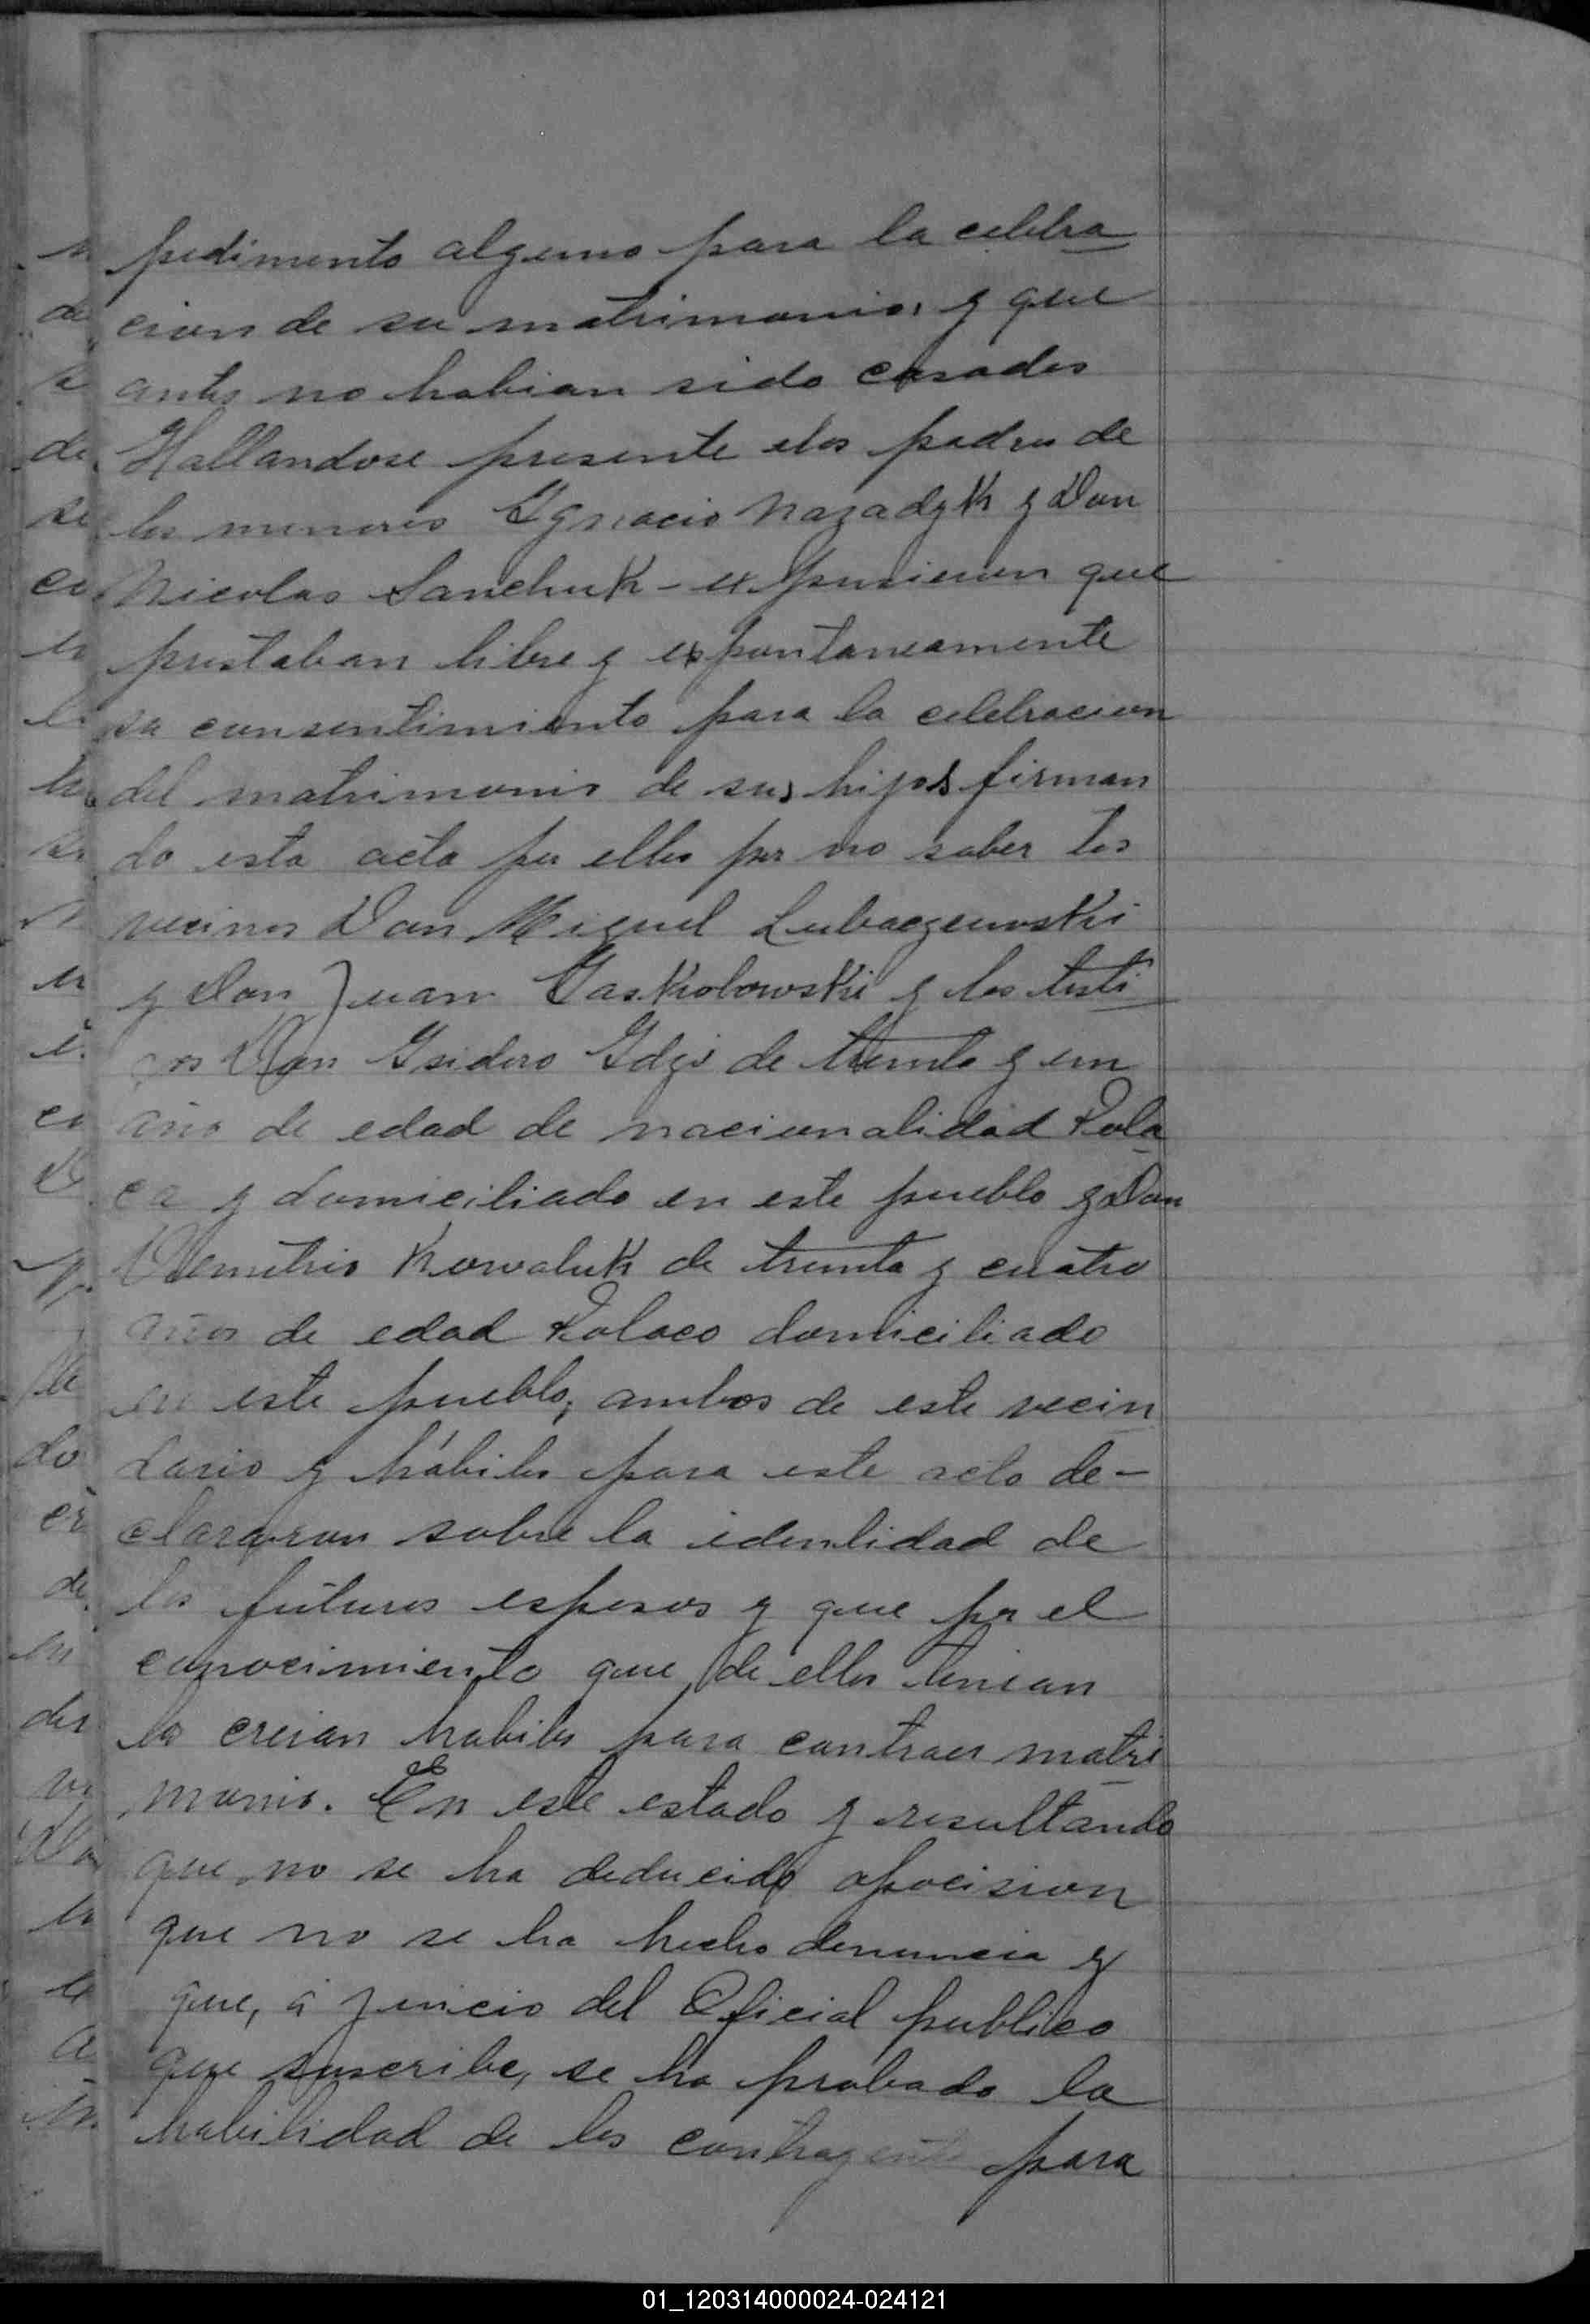 pedimento alguno para la celebra
cion de su matrimonio, y que
antes no habian sido casados
Hallandose presente elos padres de
los menores Ygnacio Nazadyk y Don
Nicolas Sanchuk - expusieron que
prestaban libre y espontaneamente
su consentimiento para la celebracion
del matrimonio de sus hijos firman
do esta acta por ellos por no saber los
vecinos Don Miguel Lubaczewski
y Don Juan Yaskolowski y los testi
gos Don Ysidoro Ydzi de treinta y un
año de edad de nacionalidad Pola
ca y domiciliado en este pueblo y Don
Demetrio Kowaluk de treinta y cuatro
años de edad Polaco domiciliado
en este pueblo, ambos de este vecin
dario y hábiles para este acto de-
clararon sobre la identidad de
los futuros esposos y que por el
conocimiento que de ellos tenian
los creian habiles para contraer matri
monio. En este estado y resultando
que no se ha deducido opocision
que no se ha hecho denuncia y
que, á juicio del Oficial publico
que suscribe, se ha probado la
habilidad de los contrayente para
01_120314000024-024121